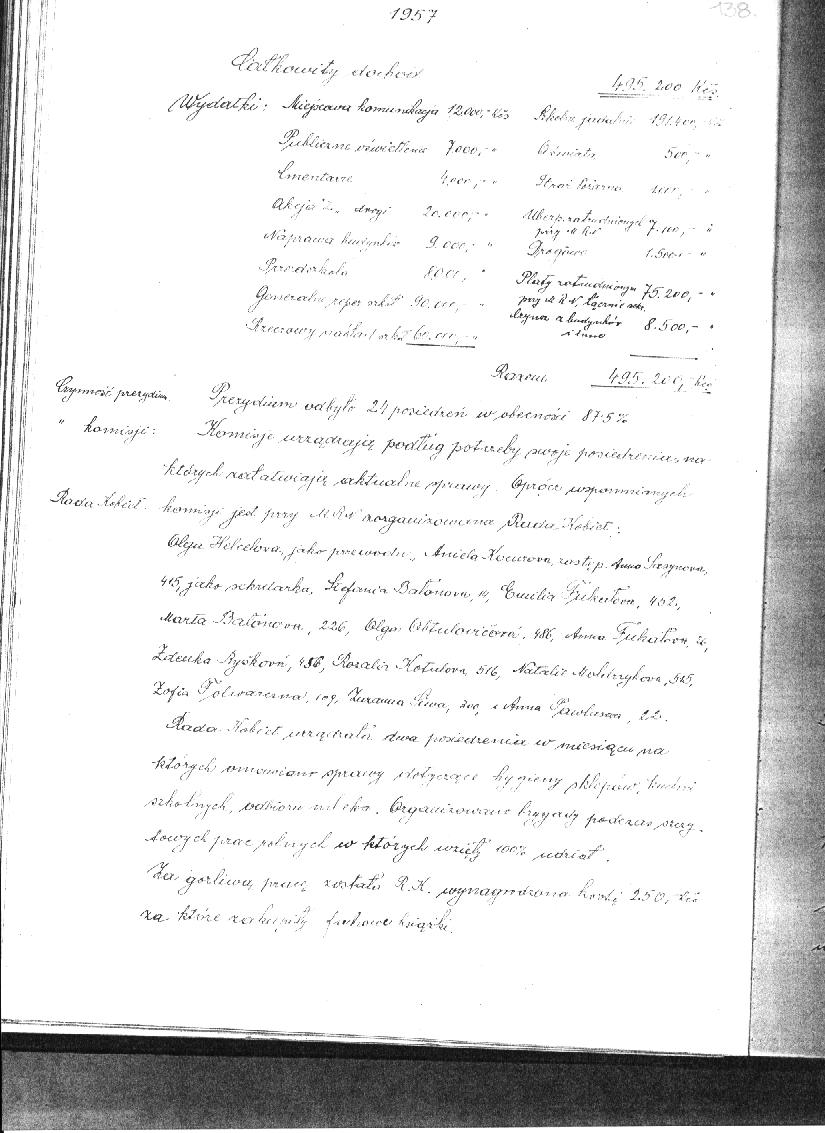 1957
138.
Całkowity dochod 495.200 Kčs.
Wydatki: Miejscowa komunikacja 12.000,- Kčs Szkolne jadalnie 191.400,- Kčs
Publiczne oświetlenie 7.000,- " Oświata 500,- "
Cmentarze 4.000,- " Straż Pożarna "
Akcja "Z" drogi 20.000,- " Ubezp. zatrudnionych przy M R N "
Naprawa budynków 9.000,- " Drogowe 1.500,- "
Przedszkola " Płaty zatrudnionym przy M R N, łącznie 75.200,- "
Generalna reper. szkół 90.000,- " Czynsz z budynków i inne 8.500,- "
Rzeczowy nakład szkół 60.000,- "
Razem 495.200,- Kčs
Czynność prezydium. Prezydium odbyło 24 posiedzeń w obecności 87.5%
" komisji: Komisje urządzają podług potrzeby swoje posiedzenia, na
których załatwiają aktualne sprawy. Oprócz wspomnianych
Rada Kobiet. komisji jest przy M R N zorganizowana Rada Kobiet:
Olga Helcelova, jako przewodn., Aniela Kocurova, zastęp. Anna
415, jako sekretarka, Stefania Batónova, 14, Emilia Fukałova, 402,
Marta Batónova, 226, Olga 486, Anna Fukałova,
Zdenka Ryšková, 486, Rozalia Kotulova, 516, Natalie 515,
Zofia Folwarczna, 109, Zuzanna Siwa, 200, i Anna Pawlasova, 22.
Rada Kobiet urządzała dwa posiedzenia w miesiącu na
których omawiano sprawy dotyczące hygieny sklepów, kuchni
szkolnych, odbioru mleka. Organizowano brygady podczas szczy-
towych prac rolnych w których wzięły 100% udział.
Za gorliwą pracę została R.K. wynagrodzona kwotą 250,- Kčs
za które zakupiły fachowe książki.